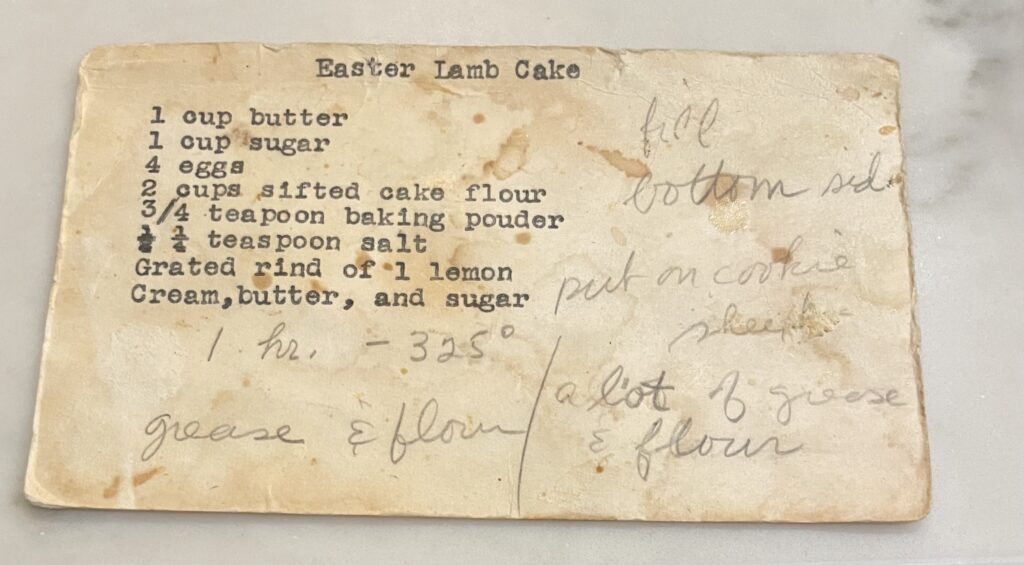 Easter Lamb Cake
1 cup butter
1 cup sugar
4 eggs
2 cups sifted cake flour
3/4 teapoon baking pouder
¼ teaspoon salt
Grated rind of 1 lemon
Cream,butter, and sugar
1 hr. - 325°
grease & flour
fill
bottom
put on cookie
sheet
a lot of grease
& flour